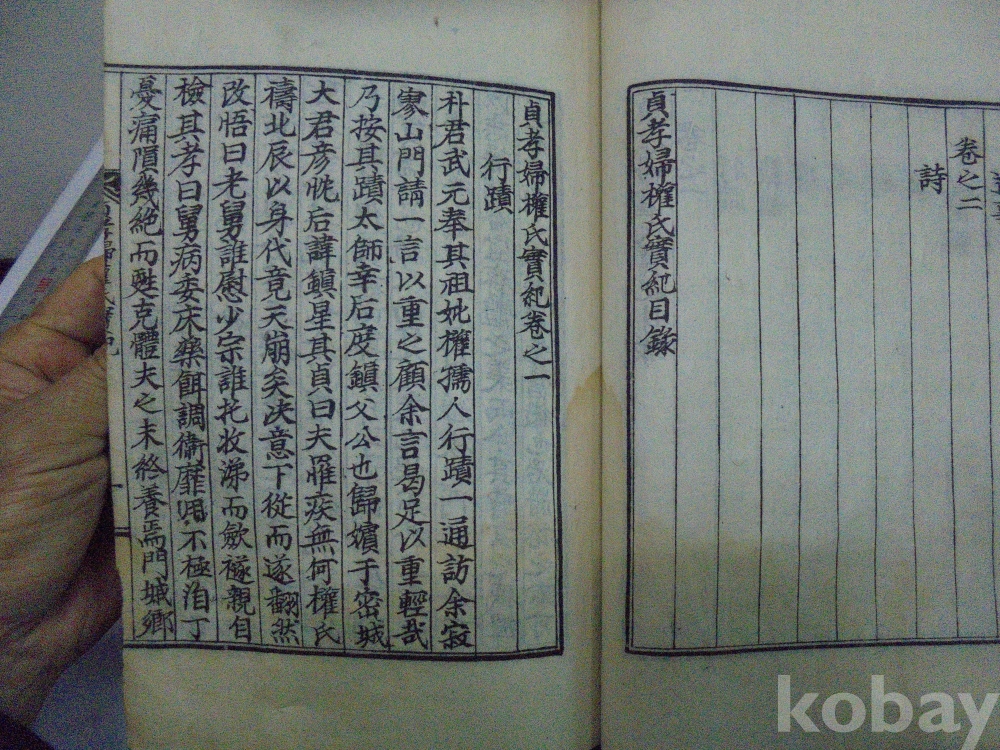 卷之二
詩
貞孝婦權氏實紀目錄
貞孝婦權氏實紀卷之一
行蹟
朴君武元奉其祖妣權孺人行蹟一通訪余寂
寥山門請一言以重之顧余言曷足以重輕哉
乃按其蹟太師幸后度鎭父公也歸嬪于密城
大君彦忱后諱鎭星其貞曰夫罹疾無何權氏
禱北辰以身代竟天崩矣决意下從而遂翻然
改悟曰老舅誰慰少宗誰托收涕而歛襚親自
檢其孝曰舅病委床藥餌調衛靡 不極洎丁
憂痛隕幾絶而甦克體夫之未終養焉門城鄕
kobay